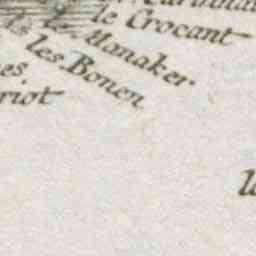 le Crocant
le Manaker
les Bonen
es
riot